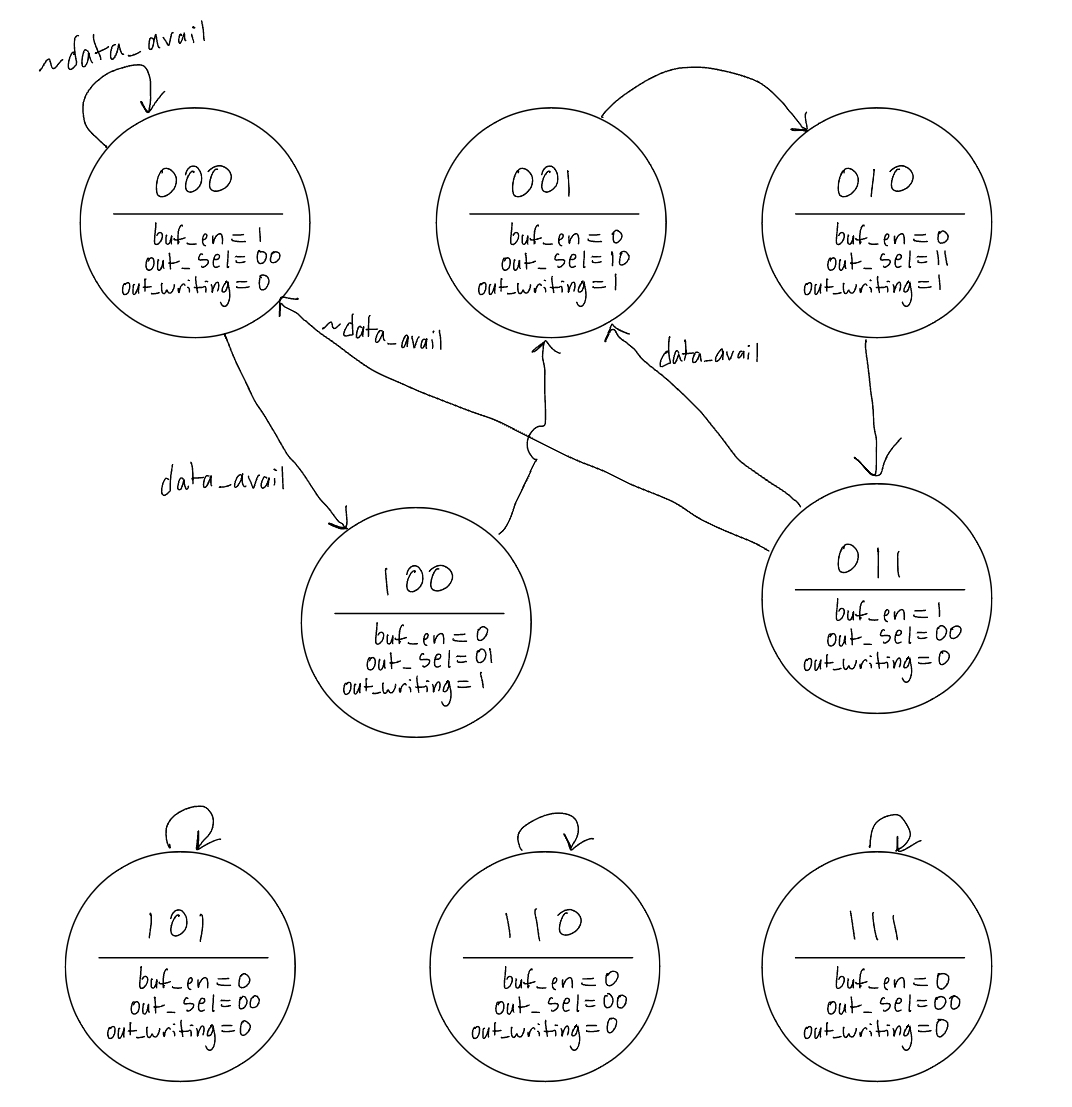 ~data_avail
000
buf_en = 1
out_sel = 00
out_writing = 0
001
buf_en = 0
out_sel = 10
out_writing = 1
010
buf_en = 0
out_sel = 11
out_writing = 1
~data_avail
data_avail
data_avail
100
buf_en = 0
out_sel = 01
out_writing = 1
011
buf_en = 1
out_sel = 00
out_writing = 0
101
buf_en = 0
out_sel = 00
out_writing = 0
110
buf_en = 0
out_sel = 00
out_writing = 0
111
buf_en = 0
out_sel = 00
out_writing = 0